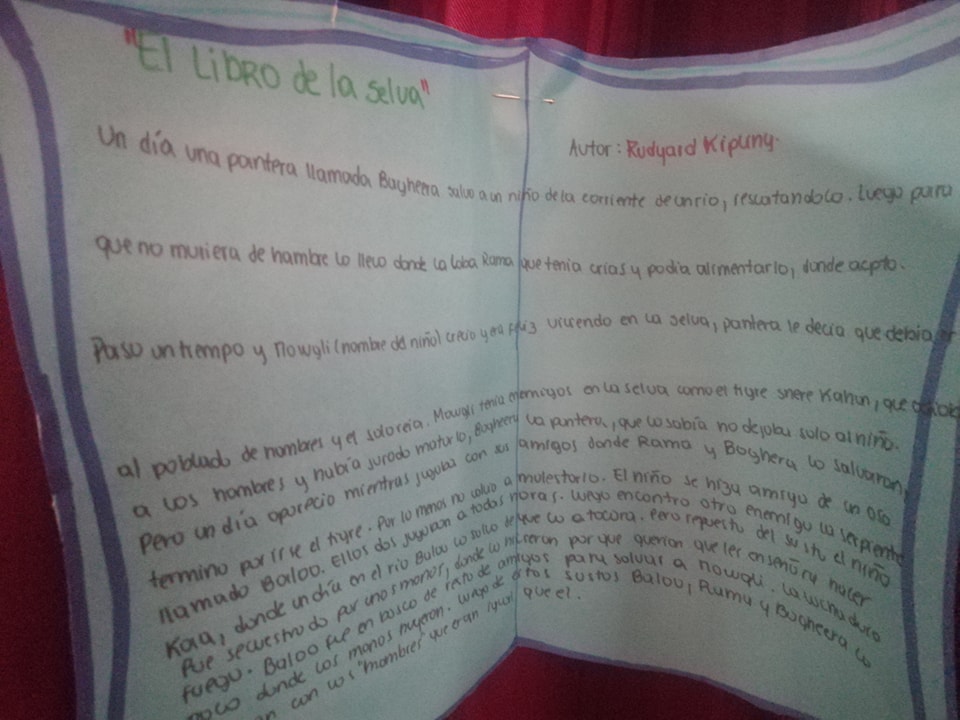 "El LiBRO de la selva"
Autor: Rudyard Kipling.
Un día una pantera llamada Bagheera salvo a un niño de la corriente de un río, rescatandolo. Luego para
que no muriera de hambre lo llevo donde la loba Rama que tenia crías y podia alimentarlo, donde acpto.
Paso un tiempo y Mowgli (nombre del niño) crecio y era feliz viviendo en la selva, pantera le decía que debia
al poblado de hombres y el solo reia. Mowgli tenia enemigos en la selva como el tigre shere Kahun, que
a los hombres y hubía jurado matarlo, Bagheera la pantera, que lo sabía no dejaba solo al niño.
Pero un día aparecio mientras jugaba con sus amigos donde Rama y Boghera lo salvaron,
termino por irse el tigre. Por lo menos no volvio a molestarlo. El niño se hizo amigo de un oso
llamado Baloo. Ellos dos jugaban a todas horas. Luego encontro otro enemigo la serpiente
Kaa, donde un día en el rio Baloo lo salvo de que lo atacara. Pero repuesto del susto, el niño
fue secuestrado por unos monos, donde lo hicieron por que querian que les enseñara hacer
fuego. Baloo fue en busca de resto de amigos para salvar a Mowgli. La lucha duro
poco donde los monos huyeron. Luego de estos sustos Baloo, Rama y Bagheera lo
con los "hombres" que eran igual que el.